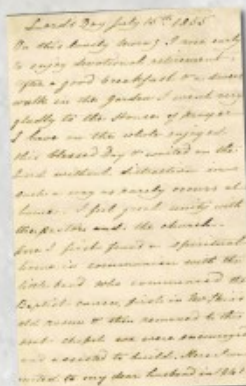 Lord's Day July 15th 1855
On this lovely morng I rose early
to enjoy devotional retirement
after a good breakfast & a sweet
walk in the garden I went very
gladly to the House of prayer
I have on the whole enjoyed
this blessed Day & waited on the
Lord without distraction in
such a way as rarely occurs at
home. I felt great unity with
the pastor and the church.
here I first found a spiritual
home in communion with the
little band who commenced the
Baptist cause, first in
old room & then removed to this
chapel we were encouraged
and assisted to build. Here I was
united to my dear husband in